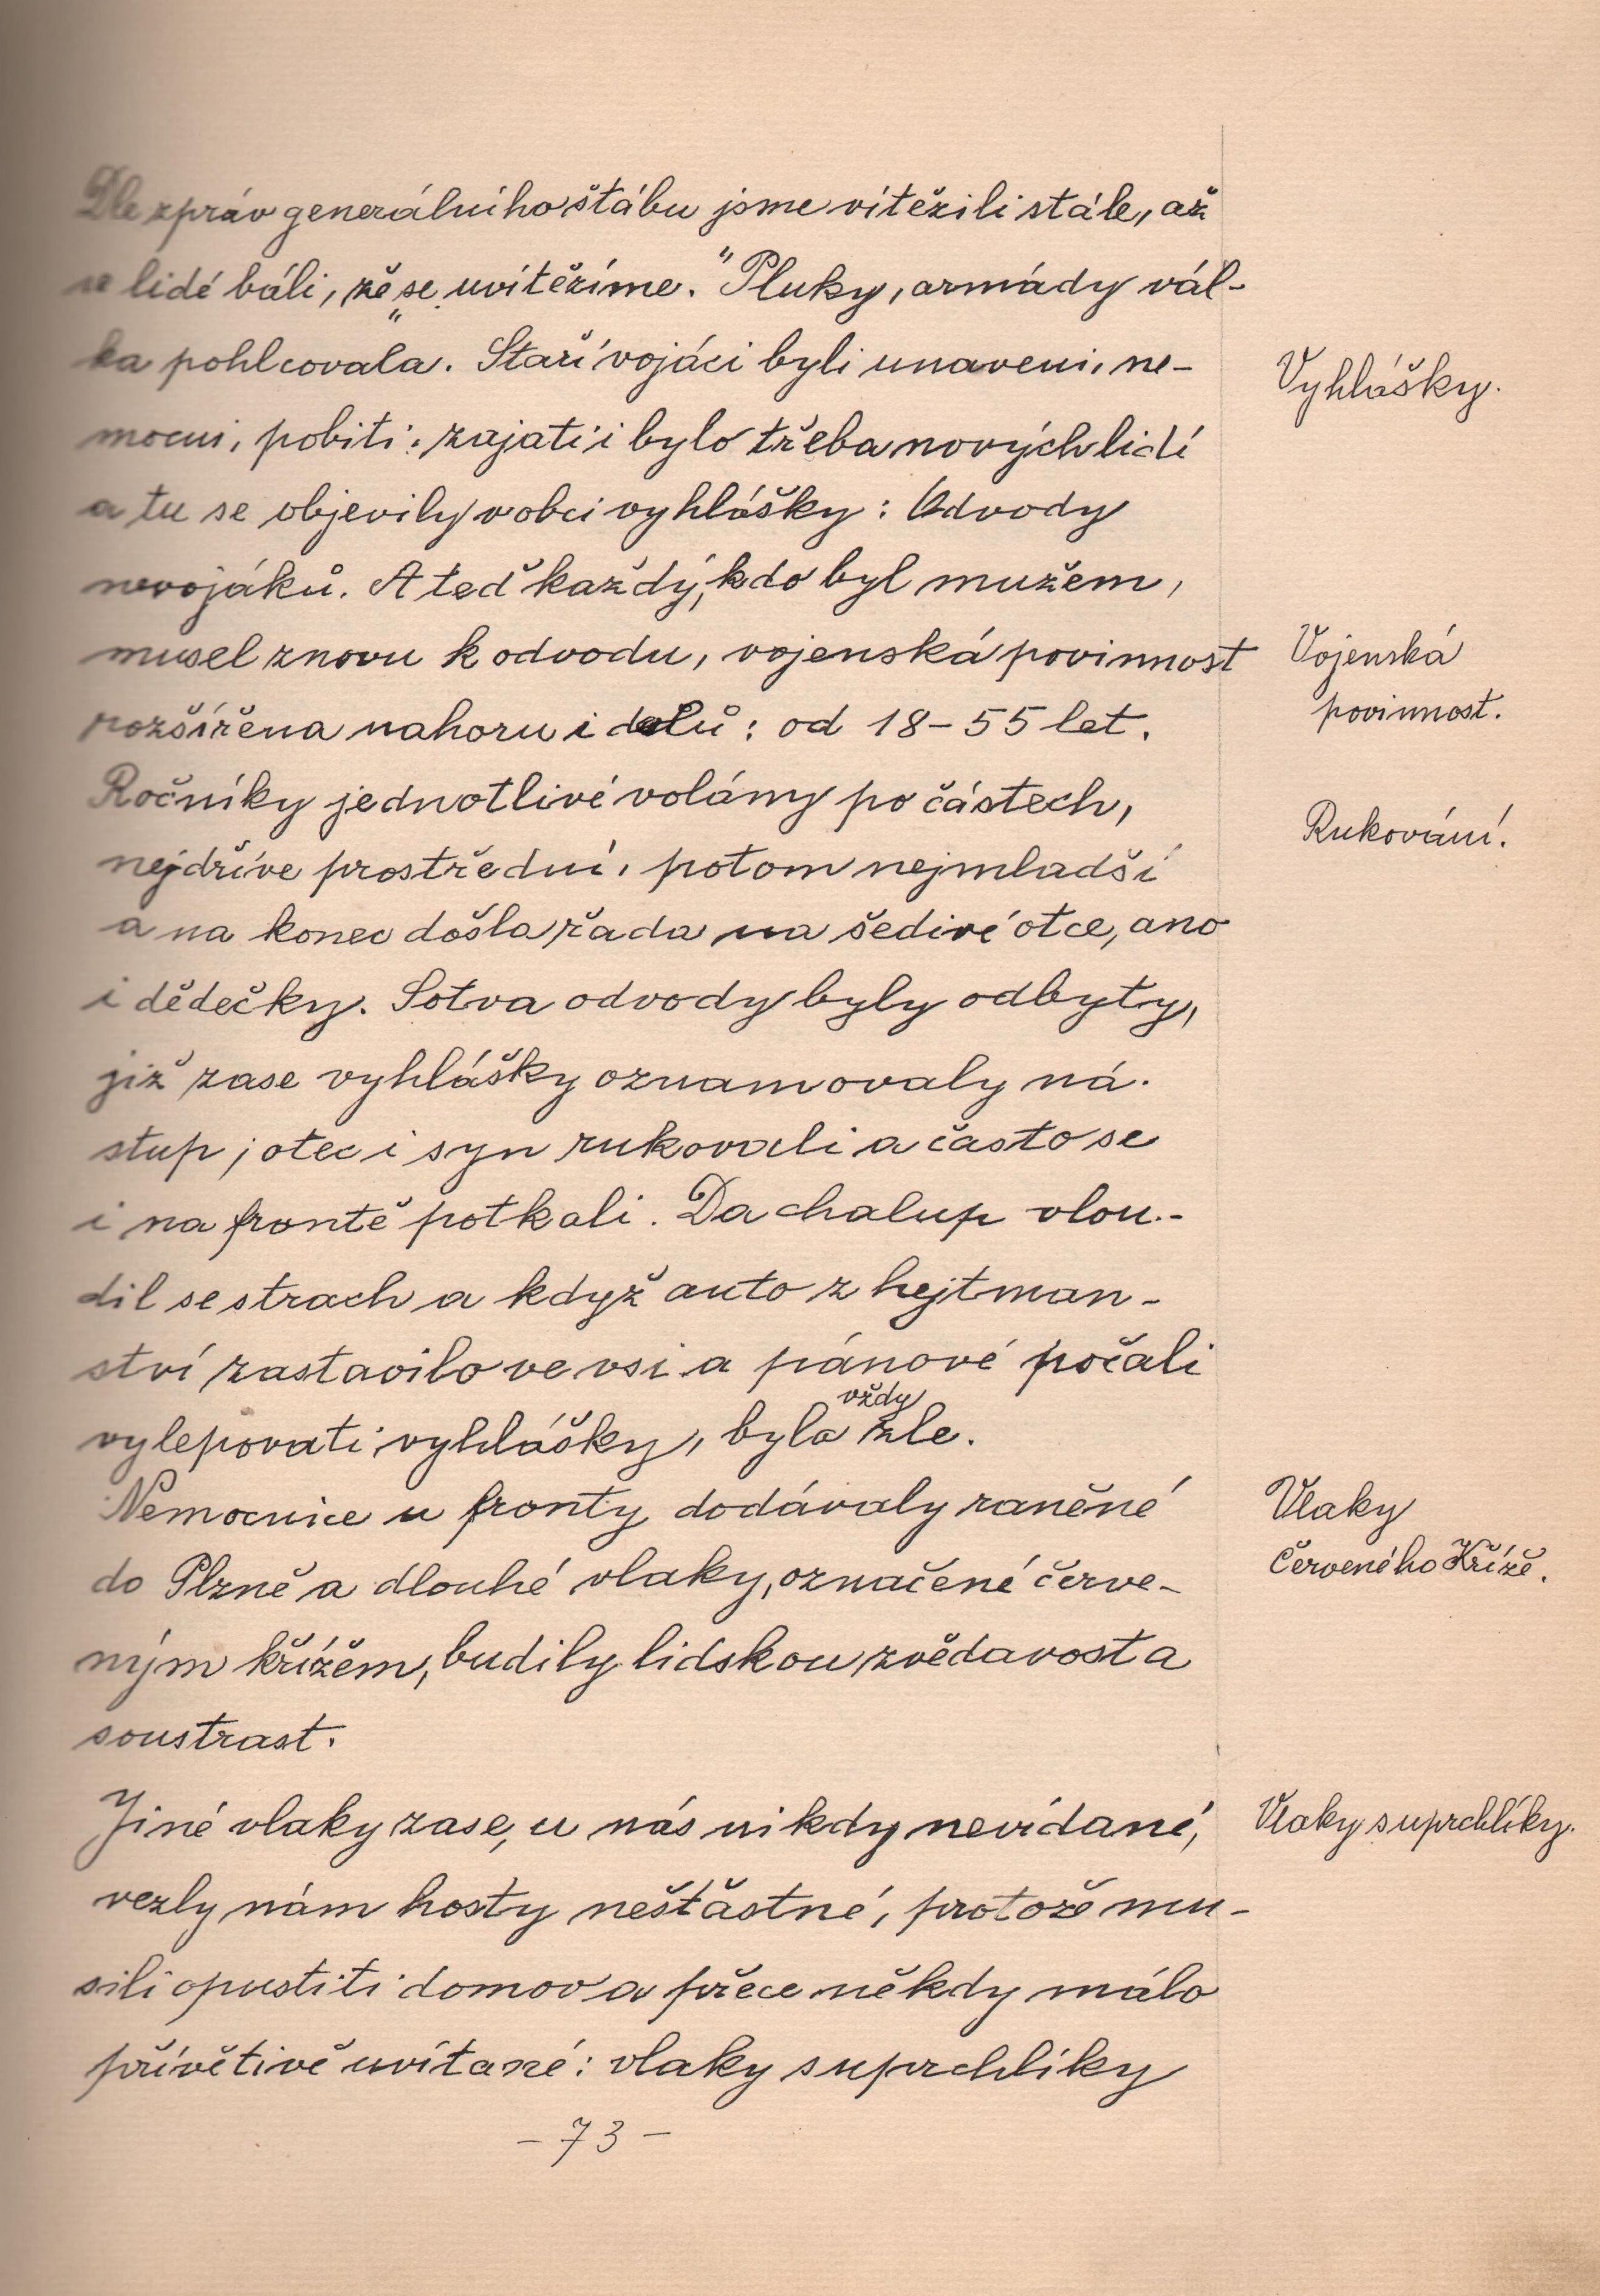 Dle zpráv generálního štábu jsme vítězili stále, až
se lidé báli, že „se uvítězíme.“ Pluky, armády vál-
ka pohlcovala. Staří vojáci byli unaveni, ne-
Vyhlášky.
mocni, pobiti, zajati i bylo třeba nových lidí
a tu se objevily v obci vyhlášky: Odvody
nevojáků. A teď každý, kdo byl mužem,
musel znovu k odvodu, vojenská povinnost
Vojenská
povinnost.
rozšířena nahoru i dolů: od 18-55 let.
Ročníky jednotlivé volány po částech,
Rukování.
nejdříve prostřední, potom nejmladší
a na konec došla řada na šedivé otce, ano
i dědečky. Sotva odvody byly odbyty,
již zase vyhlášky oznamovaly ná-
stup; otec i syn rukovali a často se
i na frontě potkali. Do chalup vlou-
dil se strach a když auto z hejtman-
ství zastavilo ve vsi a pánové počali
vylepovati vyhlášky, bylo vždy zle.
Nemocnice u fronty dodávaly raněné
Vlaky
Červeného Kříže.
do Plzně a dlouhé vlaky, označené červe-
ným křížem, budily lidskou zvědavost a
soustrast.
Jiné vlaky zase, u nás nikdy nevídané,
Vlaky s uprchlíky.
vezly nám hosty nešťastné, protože mu-
sili opustiti domov a přece někdy málo
přívětivě uvítané: vlaky s uprchlíky
- 73 -